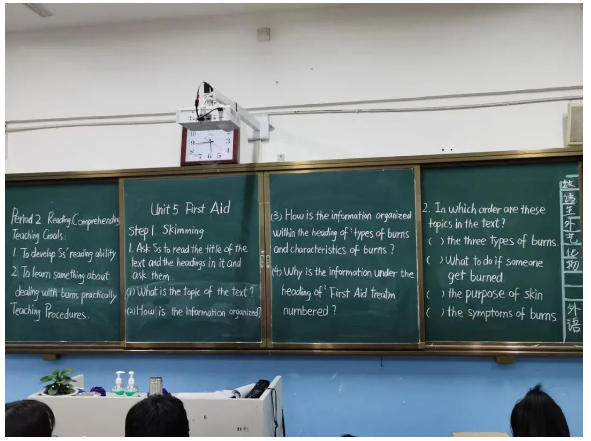 Period 2 Reading Comprehending
Teaching Goals:
1. To develop Ss' reading ability
2. To learn something about
dealing with burns practically
Teaching Procedures.
Unit 5 First Aid
Step 1. Skimming
1. Ask Ss to read the title of the
text and the headings in it and
ask them
(1) What is the topic of the text?
(2) How is the information organized?
(3) How is the information organized
within the heading of "types of burns
and characteristics of burns?
(4) Why is the information under the
heading of "First Aid Treatm
numbered?
2. In which order are these
topics in the text?
( ) the three types of burns.
( ) What to do if someone
get burned
( ) the purpose of skin
( ) the symptoms of burns
数
语
生
外
化
物
外
语